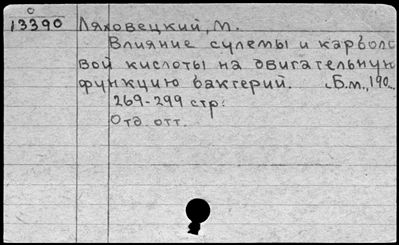 о
13390 Ляховецкий, М.
Влияние сулемы и карболо
вой кислоты на двигательную
функцию бактерий. Б.м., 190
269-299 стр.
Отд. отт.